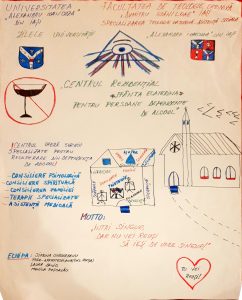 UNIVERSITATEA
"ALEXANDRU IOAN CUZA"
DIN IAȘI
ZILELE UNIVERSITĂȚII
FACULTATEA DE TEOLOGIE ORTODOXĂ
"DUMITRU STĂNILOAE" IAȘI
SPECIALIZAREA TEOLOGIE ORTODOXĂ ASISTENȚĂ SOCIALĂ
ALEXANDRU IOAN CUZA DIN IAȘI
CENTRUL REZIDENȚIAL
PENTRU PERSOANE DEPENDENTE
DE ALCOOL"
!CENTRUL OFERĂ SERVICII
SPECIALIZATE PENTRU
RECUPERARE DIN DEPENDENȚA
DE ALCOOL!
CONSILIERE PSIHOLOGICĂ
CONSILIERE SPIRITUALĂ
CONSILIEREA FAMILIEI
TERAPII SPECIALIZATE
ASISTENȚĂ MEDICALĂ
MOTTO:
"NU EȘTI SINGUR,
DAR NU VEI REUȘI
SĂ IEȘI DE UNUL SINGUR!"
ECHIPA:
TU VEI
REUȘI!